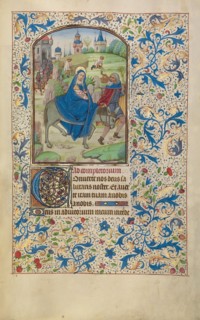 Ad completorium
Conuerte nos deus sa
lutaris noster. Et auer
te iram tuam
anobis.
Deus in adiutorium meum intende